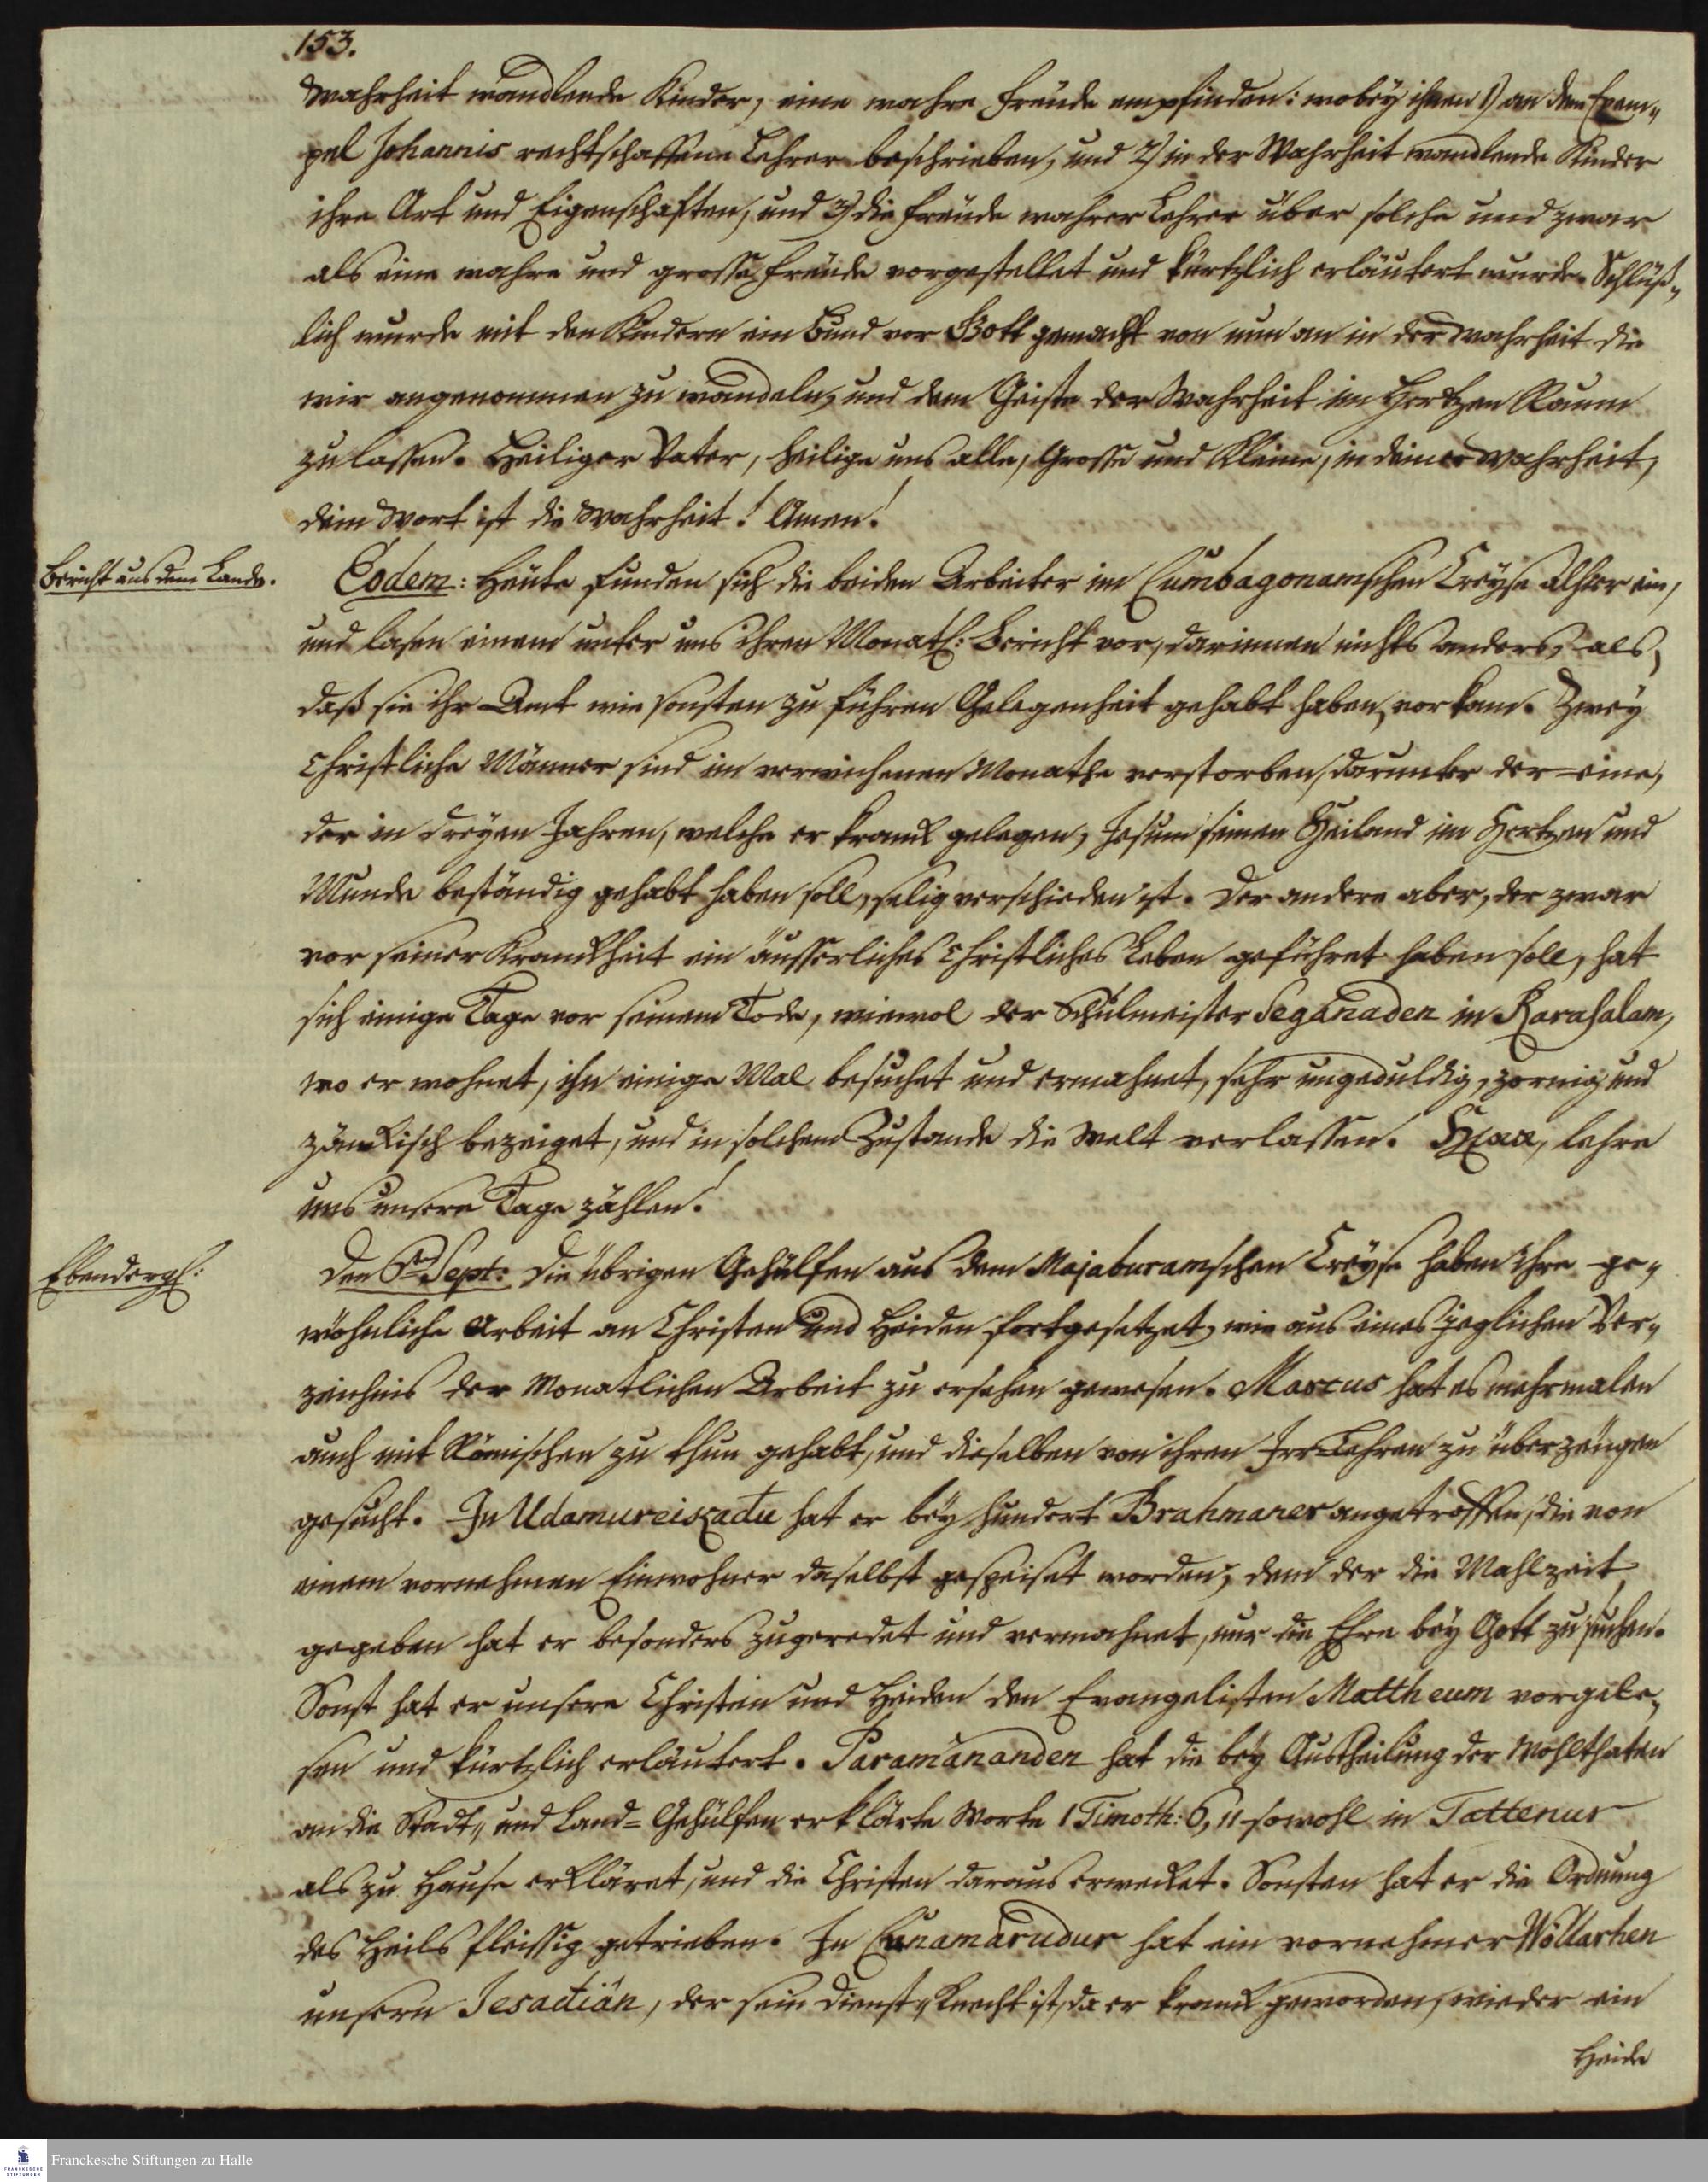 153.
Wahrheit wandlende Kinder, eine wahre Freude empfinden: wobey ihnen 1) an dem Exem„
pel Johannis rechtschaffene Lehrer beschrieben, und 2) in der Wahrheit wandlende Kinder
ihre Art und Eigenschaften, und 3) die Freude wahrer Lehrer über solche und zwar
als eine wahre und grosse Freude vorgestellet und kürtzlich erläutert wurde. Schlüß„
lich wurde mit den Kindern ein Bund vor Gott gemacht von nun an in der Wahrheit die
wir angenommen zu wandeln, und dem Geiste der Wahrheit im Hertzen Raum
zu lassen. Heiliger Vater, heilige uns alle, Grosse und Kleine, in deiner Wahrheit,
dein Wort ist die Wahrheit! Amen!
Bericht aus dem Lande.
Eodem: Heute funden sich die beiden Arbeiter im Cumbagonamschen Creyse alhier ein,
und lasen einem unter uns ihren Monatl: Bericht vor, darinnen nichts anders, als,
daß sie ihr Amt wie sonsten zu führen Gelegenheit gehabt haben, vorkam. Zwey
Christliche Männer sind im verwichenen Monathe verstorben, darunter der eine,
der in dreyen Jahren, welche er kranck gelegen, Jesum seinen Heiland im Hertzen und
Munde beständig gehabt haben soll, selig verschieden ist. Der andere aber, der zwar
vor seiner Kranckheit ein äusserliches Christliches Leben geführet haben soll, hat
sich einige Tage vor seinem Tode, wiewol der Schulmeister Seganaden in Karasalam,
wo er wohnet, ihn einige Mal besuchet und ermahnet, sehr ungeduldig, zornig und
zänckisch bezeiget, und in solchem Zustande die Welt verlassen. HErr, lehre
uns unsere Tage zählen!
Ebendergl:
Den 6ten Sept: Die übrigen Gehülfen aus dem Majaburamschen Creyse haben ihre ge„
wöhnliche Arbeit an Christen und Heiden fortgesetzet, wie aus eines jeglichen Ver„
zeichnis der Monatlichen Arbeit zu ersehen gewesen. Marcus hat es mehrmalen
auch mit Römischen zu thun gehabt, und dieselben von ihren Irr-Lehren zu überzeugen
gesucht. In Udamureiskadu hat er bey hundert Brahmaner angetroffen, die von
einem vornehmen Einwohner daselbst gespeiset worden, dem der die Mahlzeit
gegeben hat er besonders zugeredet und vermahnet, nur die Ehre bey Gott zu suchen.
Sonst hat er unsere Christen und Heiden den Evangelisten Mattheum vorgele„
sen und kürtzlich erläutert. Paramananden hat die bey Austheilung der Wohlthaten
an die Stadt„ und Land= Gehülfen erklärte Worte 1 Timoth: 6, 11 sowohl in Tattenur
als zu Hause erkläret, und die Christen daraus erwecket. Sonsten hat er die Ordnung
des Heils fleissig getrieben. In Cunamarudur hat ein vornehmer Wöllarhen
unsern Jesadiän, der sein Dienst„Knecht ist, da er kranck geworden, wieder ein
Heide
Franckesche Stiftungen zu Halle